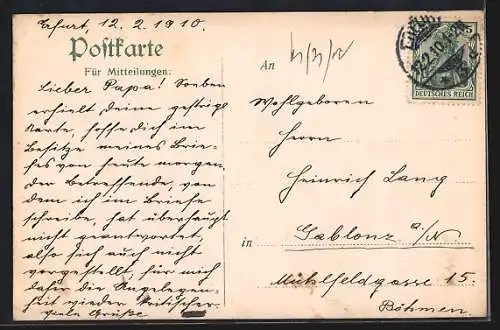 Erfurt, 12. 2. 1910.
Postkarte
Für Mitteilungen:
Lieber Papa! Soeben
erhielt deine gestrige
Karte, hoffe dich im
Besitze meines Brie-
fes von heute morgen,
der Betreffende, von
dem ich im Briefe
schreibe, hat überhaupt
nicht geantwortet,
also sich auch nicht
vorgestellt, für mich
dahin die Angelegen-
heit wieder
viele Grüße
An
Wohlgeboren
Herrn
Heinrich Lang
in Gablonz a/N
Mühlfeldgasse 15.
Böhmen
5
DEUTSCHES REICH